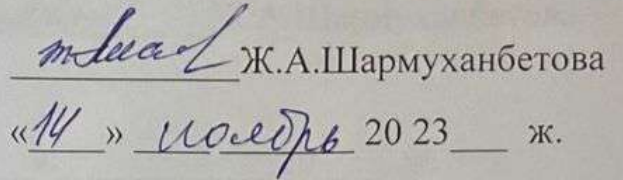 Ж.А.Шармуханбетова
«14» ноябрь 20 23___ ж.